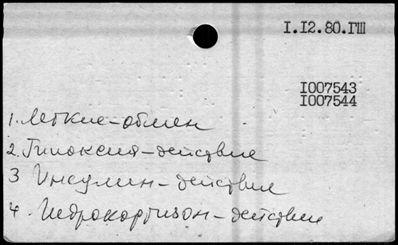 I.I2.80.ГШ
I007543
I007544
1. Легкие – обмен
2. Гипоксия – действие
3 Инсулин – действие
4. Гидрокортизон – действие